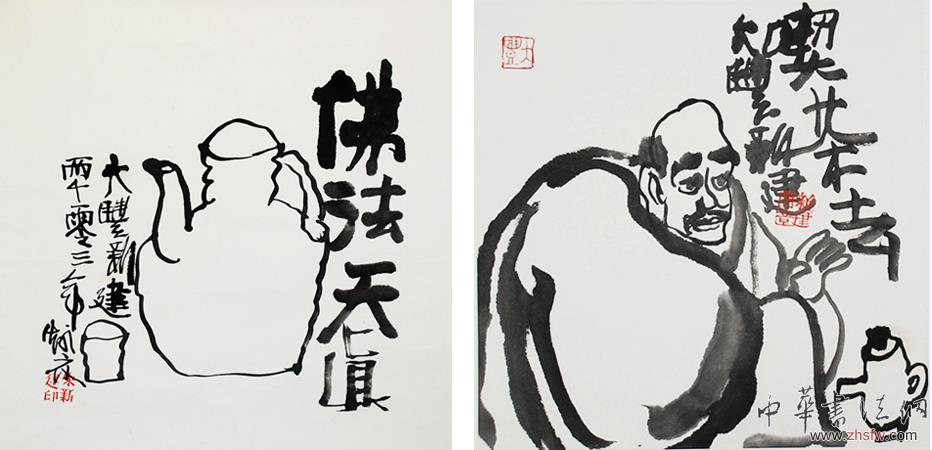 佛法天真
大豐新建
两千零三年
朱新建印
喫茶去
大豐新建
大豐
中華書法網
www.zhsfw.com